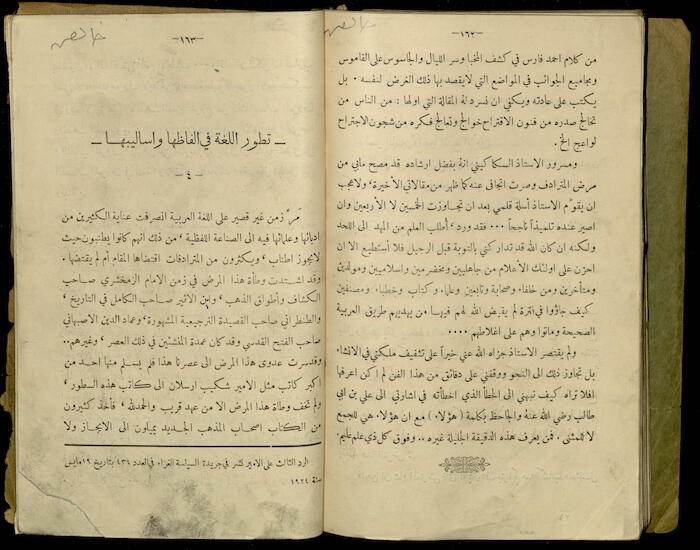 خالص
—١٦٢—
من كلام احمد فارس في كشف المخبا وسر الليال والجاسوس على القاموس
وبمجاميع الجوائب في المواضع التي لا يقصد بها ذلك الغرض لنفسه . بل
يكتب على عادته ويكفي ان نسرد لهُ المقالة التي اولها : من الناس من
تخالج صدره من فنون الاقتراح خوالج وتعالج فكره من شجون الاجتراح
لواعج الخ .
ومسرور الاستاذ السكاكيني انهُ بفضل ارشاده قد مصح مابي من
مرض المترادف وصرت اتجافى عنه كما ظهر من مقالاتي الأخيرة، ولا عجب
ان يقوّم الاستاذ أسلة قلمي بعد ان تجاوزت الخمسين لا الأربعين وان
اصير عنده تلميذاً ناجحاً . . . فقد ورد، أُطلب العلم من المهد الى اللحد
ولكنه ان كان الله قد تداركني بالتوبة قبل الرحيل فلا أستطيع الا ان
احزن على اولئك الأعلام من جاهليين ومخضرمين واسلاميين ومولدين
ومتأخرين ومن خلفاء وصحابة وتابعين وعلماء وكتاب وخطباء ومصنفين
كيف جاؤوا في فترة لم يقيض الله لهم فيها من يهديهم طريق العربية
الصحيحة وماتوا وهم على اغلاطهم . . . .
ولم يقتصر الاستاذ جزاه الله عني خيراً على تثقيف ملكتي في الانشاء
بل تجاوز ذلك الى النحو ووقفني على دقائق من هذا الفن لم اكن اعرفها
افلا تراه كيف نبهني الى الخطأ الذي اخطأته في اشارتي الى علي بن ابي
طالب رضي الله عنهُ والجاحظ بكلمة (هؤلاء) مع ان هؤلاء هي للجمع
لا للمثنى . فمن يعرف هذه الدقيقة الجليلة غيره .. وفوق كل ذي علم عليم.
خالص
—١٦٣—
— تطور اللغة في الفاظها واساليبها —
— ٤ —
مرّ زمن غير قصير على اللغة العربية انصرفت عناية الكثيرين من
ادبائها وعلمائها فيه الى الصناعة اللفظية ، من ذلك انهم كانوا يطنبون حيث
لا يجوز اطناب ، ويكثرون من المترادفات اقتضاها المقام أم لم يقتضها .
وقد اشتدت وطأة هذا المرض في زمن الامام الزمخشري صاحب
الكشاف وأطواق الذهب ، وابن الاثير صاحب الكامل في التاريخ ،
والطنطراني صاحب القصيدة الترجيعية المشهورة ، وعماد الدين الاصبهاني
صاحب الفتح القدسي وقد كان عمدة المنشئين في ذلك العصر ، وغيرهم ..
وقد سرت عدوى هذا المرض الى عصرنا هذا فلم يسلم منها احد من
اكبر كاتب مثل الامير شكيب ارسلان الى كاتب هذه السطور ،
ولم تخف وطأة هذا المرض الا من عهد قريب والحمد لله ، فأخذ كثيرون
من الكتاب اصحاب المذهب الجديد يميلون الى الايجاز ولا
الرد الثالث على الامير نشر في جريدة السياسة الغراء في العدد ٤٣٤ بتاريخ ١٩ مايس
سنة ١٩٢٤